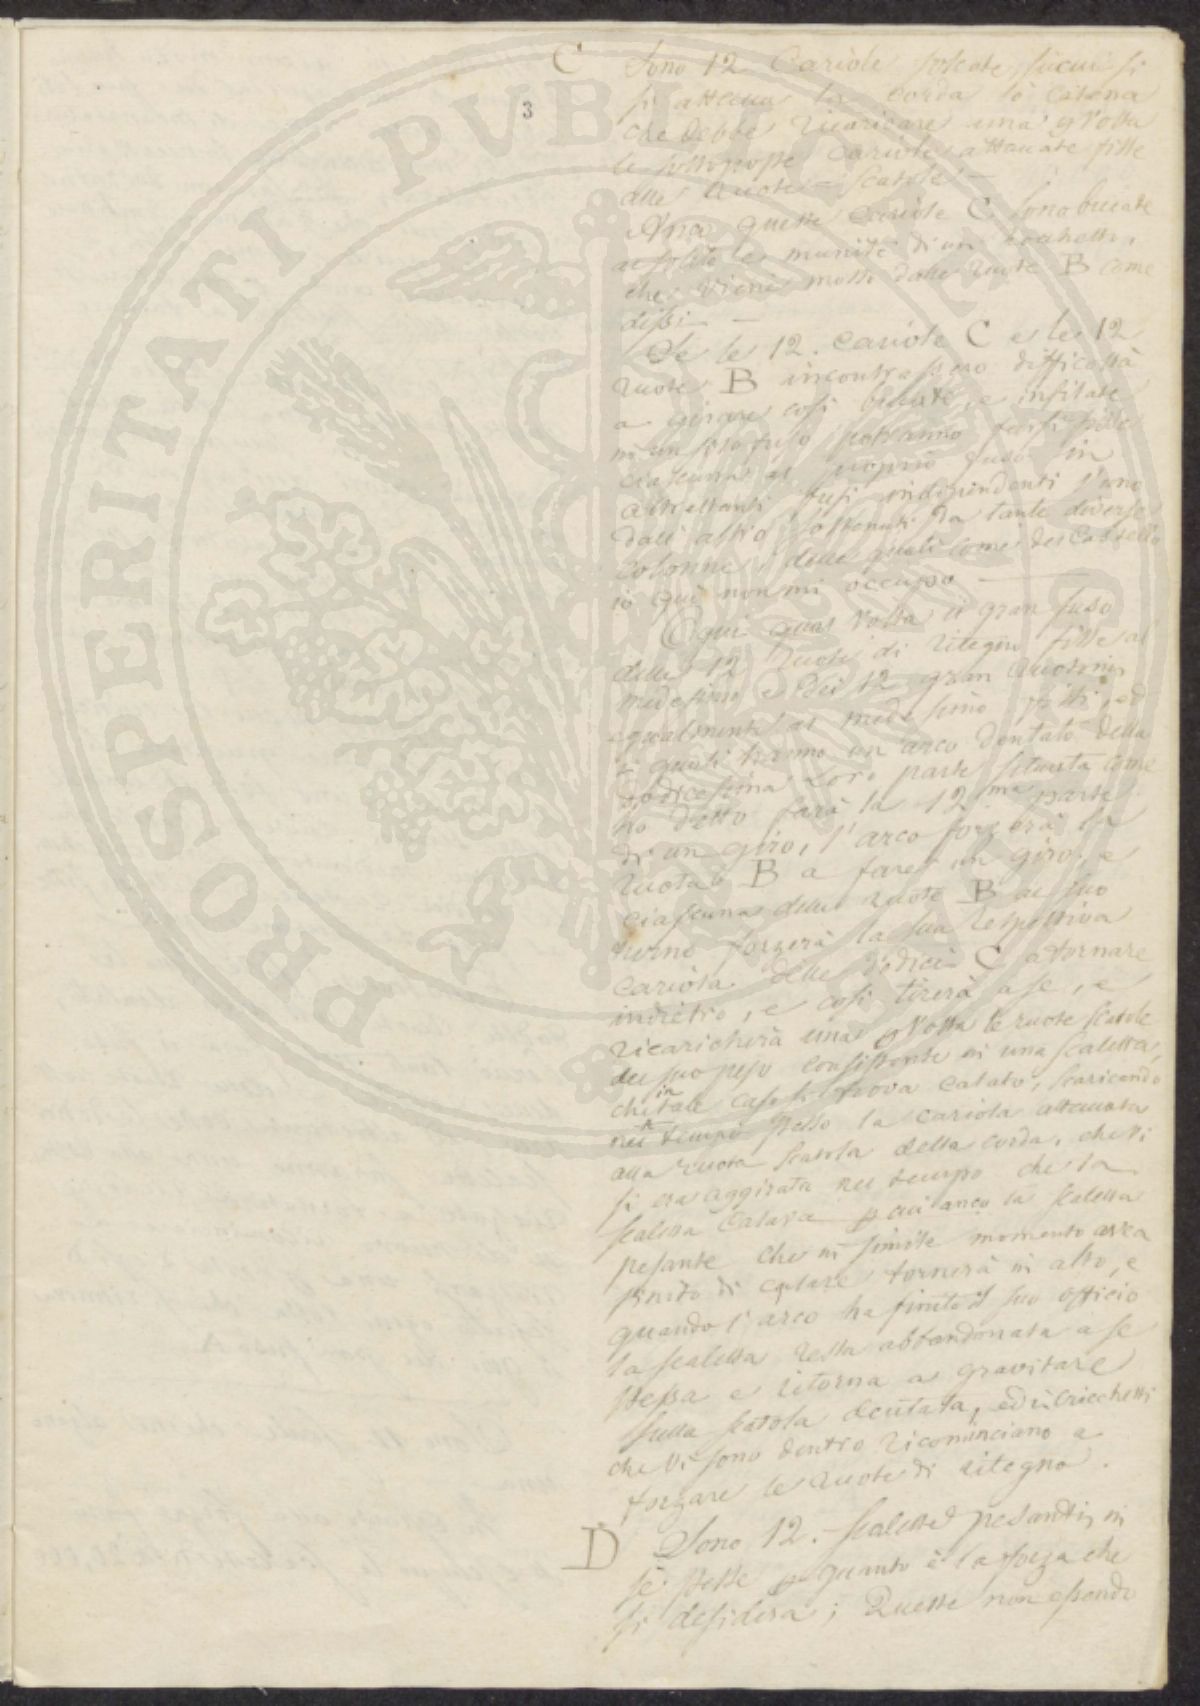 C Sono 12 Cariole solcate, su cui si
si attacca la corda o catena
che debbe ricaricare una p volta
le sottoposte cariole attaccate fisse
alle Ruote = scatole =
3
Ma queste cariole C sono bucate
al solito e munite di un rochetto,
che viene mosso dalle ruote B come
dissi —
Se le 12. cariole C e le 12
ruote B incontrassero difficoltà
a girare così bucate, e infilate
in un solo fuso, potranno farsi fisse
ciascuna al proprio fuso in
altrettanti fusi indipendenti l'uno
dall'altro sostenuti da tante diverse
colonne, delle quali come del Castello
io quì non mi occupo —
Ogni qual volta il gran fuso
delle 12 ruote di ritegno fisse al
medesimo e dei 12 gran Ruotoni
egualmente al medesimo fissi, ed
i quali hanno un arco dentato della
dodicesima loro parte situata come
ho detto farà la 12.ma parte
di un giro, l'arco forzerà la
Ruota B a fare un giro, e
ciascuna delle ruote B al suo
turno forzerà la sua respettiva
cariola delle dodici C a tornare
indietro, e così tirerà a se, e
ricaricherà una p volta le ruote scatole
del suo peso consistente in una scaletta,
che in tale caso si trova calato, scaricando
nel tempo stesso la cariola attaccata
alla ruota scatola della corda, che vi
si era aggirata nel tempo che la
scaletta calava p cui anco la scaletta
pesante che in simile momento avea
finito di calare tornerà in alto, e
quando l'arco ha finito il suo officio
la scaletta resta abbandonata a se
stessa e ritorna a gravitare
sulla scatola dentata, ed i cricchetti
che vi sono dentro ricominciano a
forzare le ruote di ritegno.
D Sono 12. scalette pesanti, in
se stesse p quanto è la forza che
si desidera; Queste non essendo
PROSPERITATI PVBLICAE